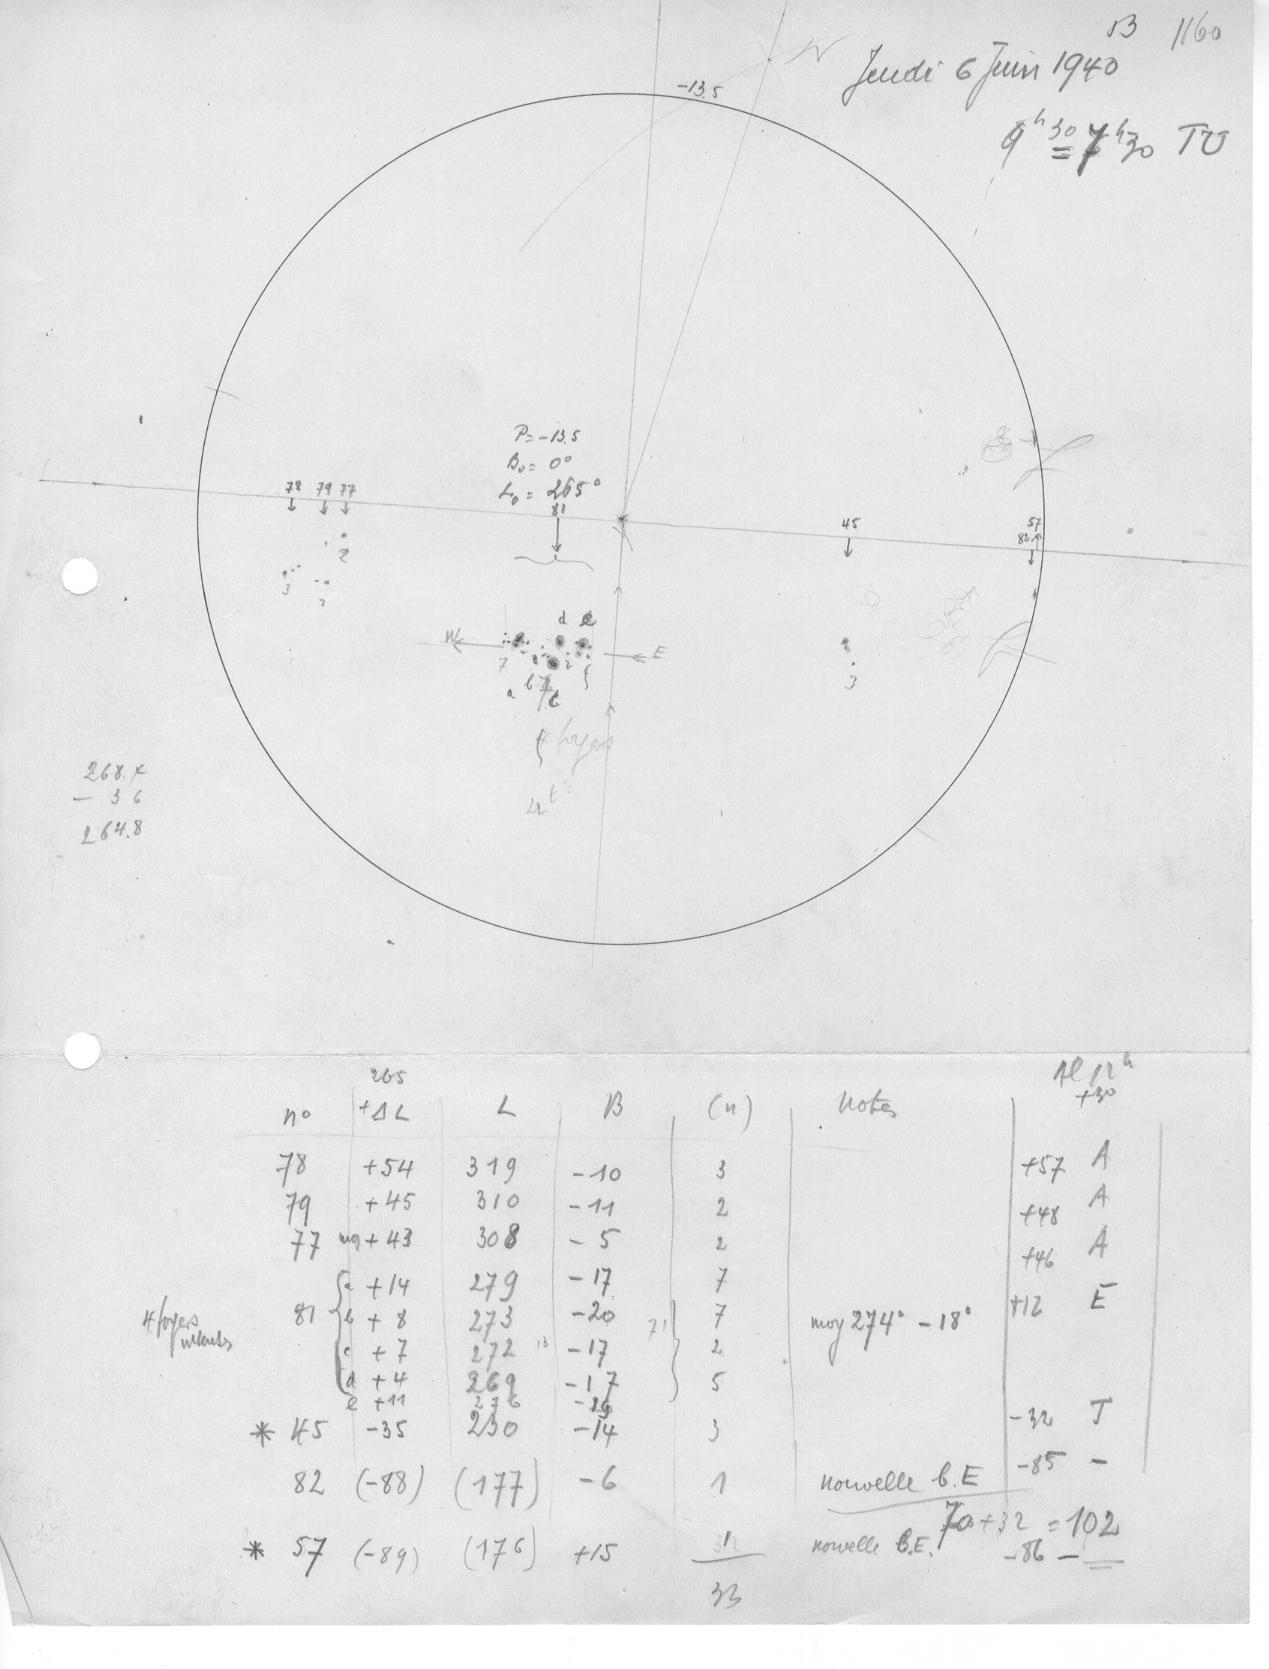 B 1160
Jeudi 6 Juin 1940
9h30 = 7h30 TU
N
-13.5
P=-13.5
B0= 0°
L0= 265°
78 79 77
81
45
57
82
2
3
2
3
d e
W
E
7
2
a b c f
3
4 foyers
268.4
- 36
264.8
265
n° +ΔL L B (n) Notes
12h
+30
78 +54 319 -10 3 +57 A
79 +45 310 -11 2 +48 A
77 +43 308 -5 2 +46 A
a +14 279 -17 7
4 foyers 81 b +8 273 -20 7 moy 274° -18° +12 E
c +7 272 -17 2
d +4 269 -17 5
e +11 276
* 45 -35 230 -14 3 -32 J
82 (-88) (177) -6 1 nouvelle b.E -85 -
70+32 =102
* 57 (-89) (176) +15 1 nouvelle b.E. -86 -
33